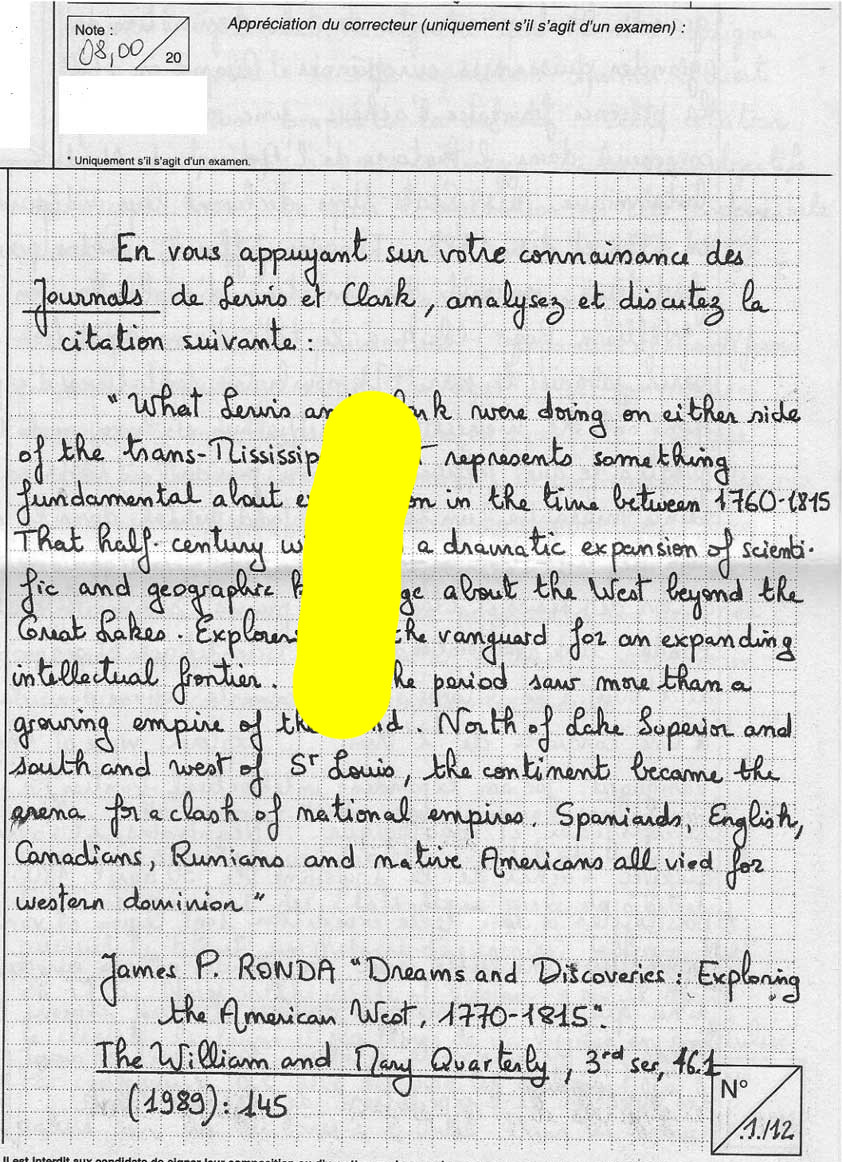 Note :
08,00 / 20
Appréciation du correcteur (uniquement s'il s'agit d'un examen) :
* Uniquement s'il s'agit d'un examen.
En vous appuyant sur votre connaissance des
Journals de Lewis et Clark, analysez et discutez la
citation suivante :
"What Lewis were doing on either side
of the trans- represents something
fundamental about in the time between 1760-1815
That half-century a dramatic expansion of scienti-
fic and geographic about the West beyond the
Great Lakes. Explorers the vanguard for an expanding
intellectual frontier. period saw more than a
growing empire of . North of Lake Superior and
south and west of St Louis, the continent became the
arena for a clash of national empires. Spaniards, English,
Canadians, Russians and native Americans all vied for
western dominion"
James P. RONDA "Dreams and Discoveries : Exploring
the American West, 1770-1815".
The William and Mary Quarterly, 3rd ser, 46.1
(1989) : 145
N°
1/12